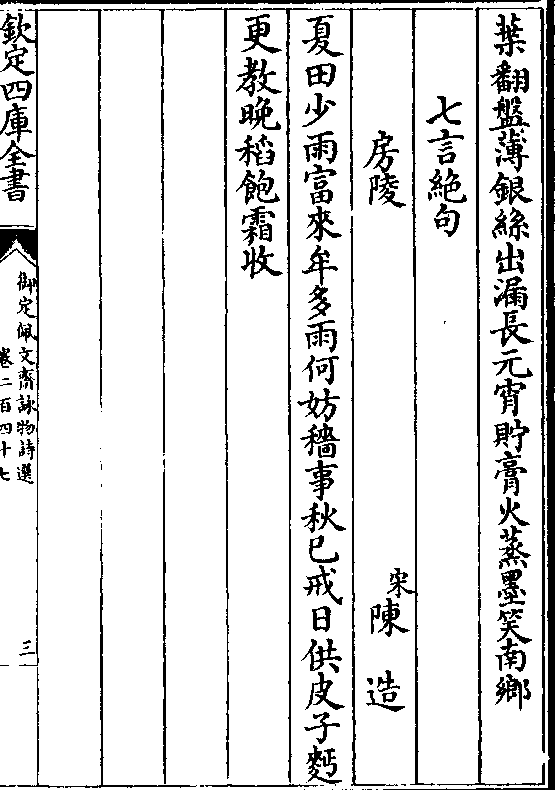 葉翻盤薄銀絲出漏長元宵貯膏火蒸墨笑南鄉
七言絶句
房陵
宋陳造
夏田少雨富來牟多雨何妨穡事秋已戒日供皮子麪
更教晚稻飽霜收
欽定四庫全書
御定佩文齋詠物詩選
卷二百四十七
三